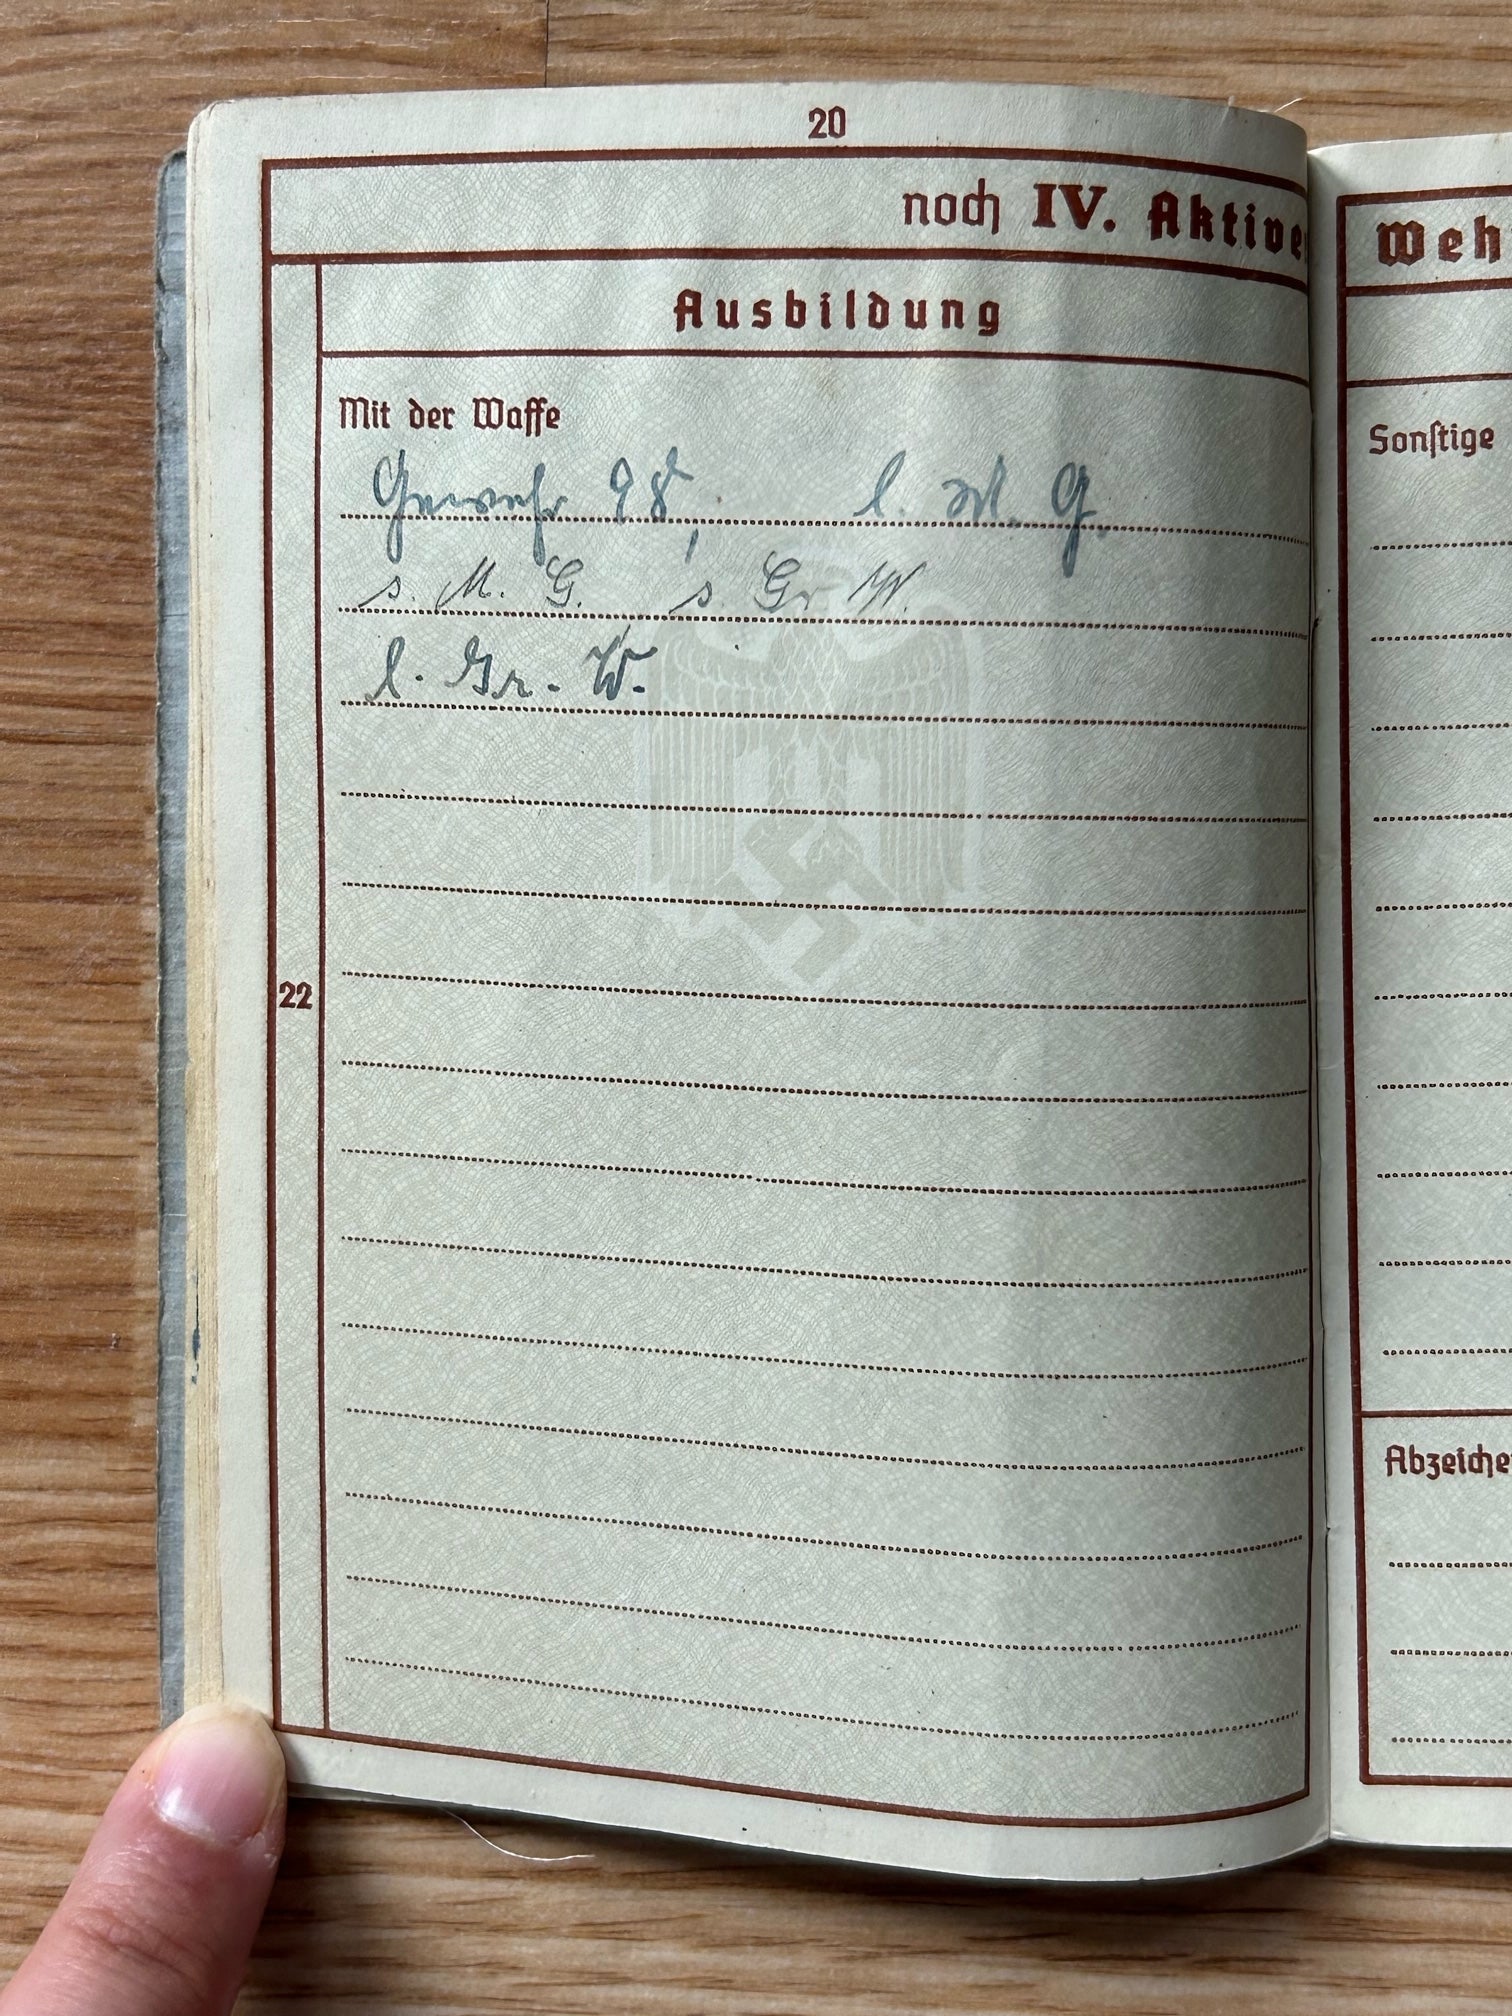 20
noch IV. Aktive
Ausbildung
Mit der Waffe
Gewehr 98, l. M. G.
s. M. G. s. Gr. W.
l. Gr. W.
22
Weh
Sonstige
Abzeiche